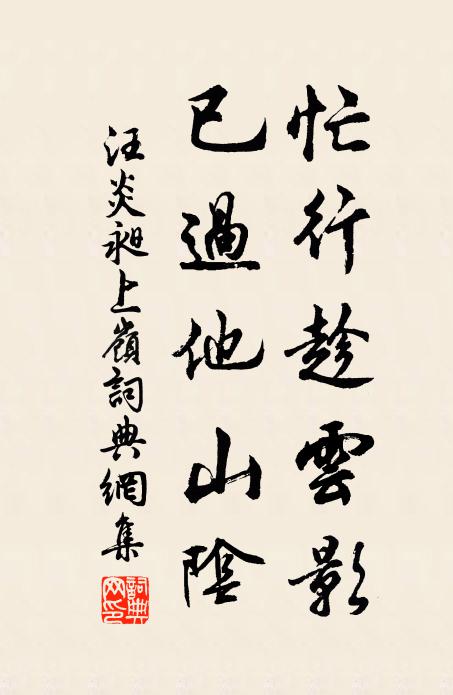 忙行趁雲影
已過他山陰
汪炎昶上嶺詞典網集
詞典網印